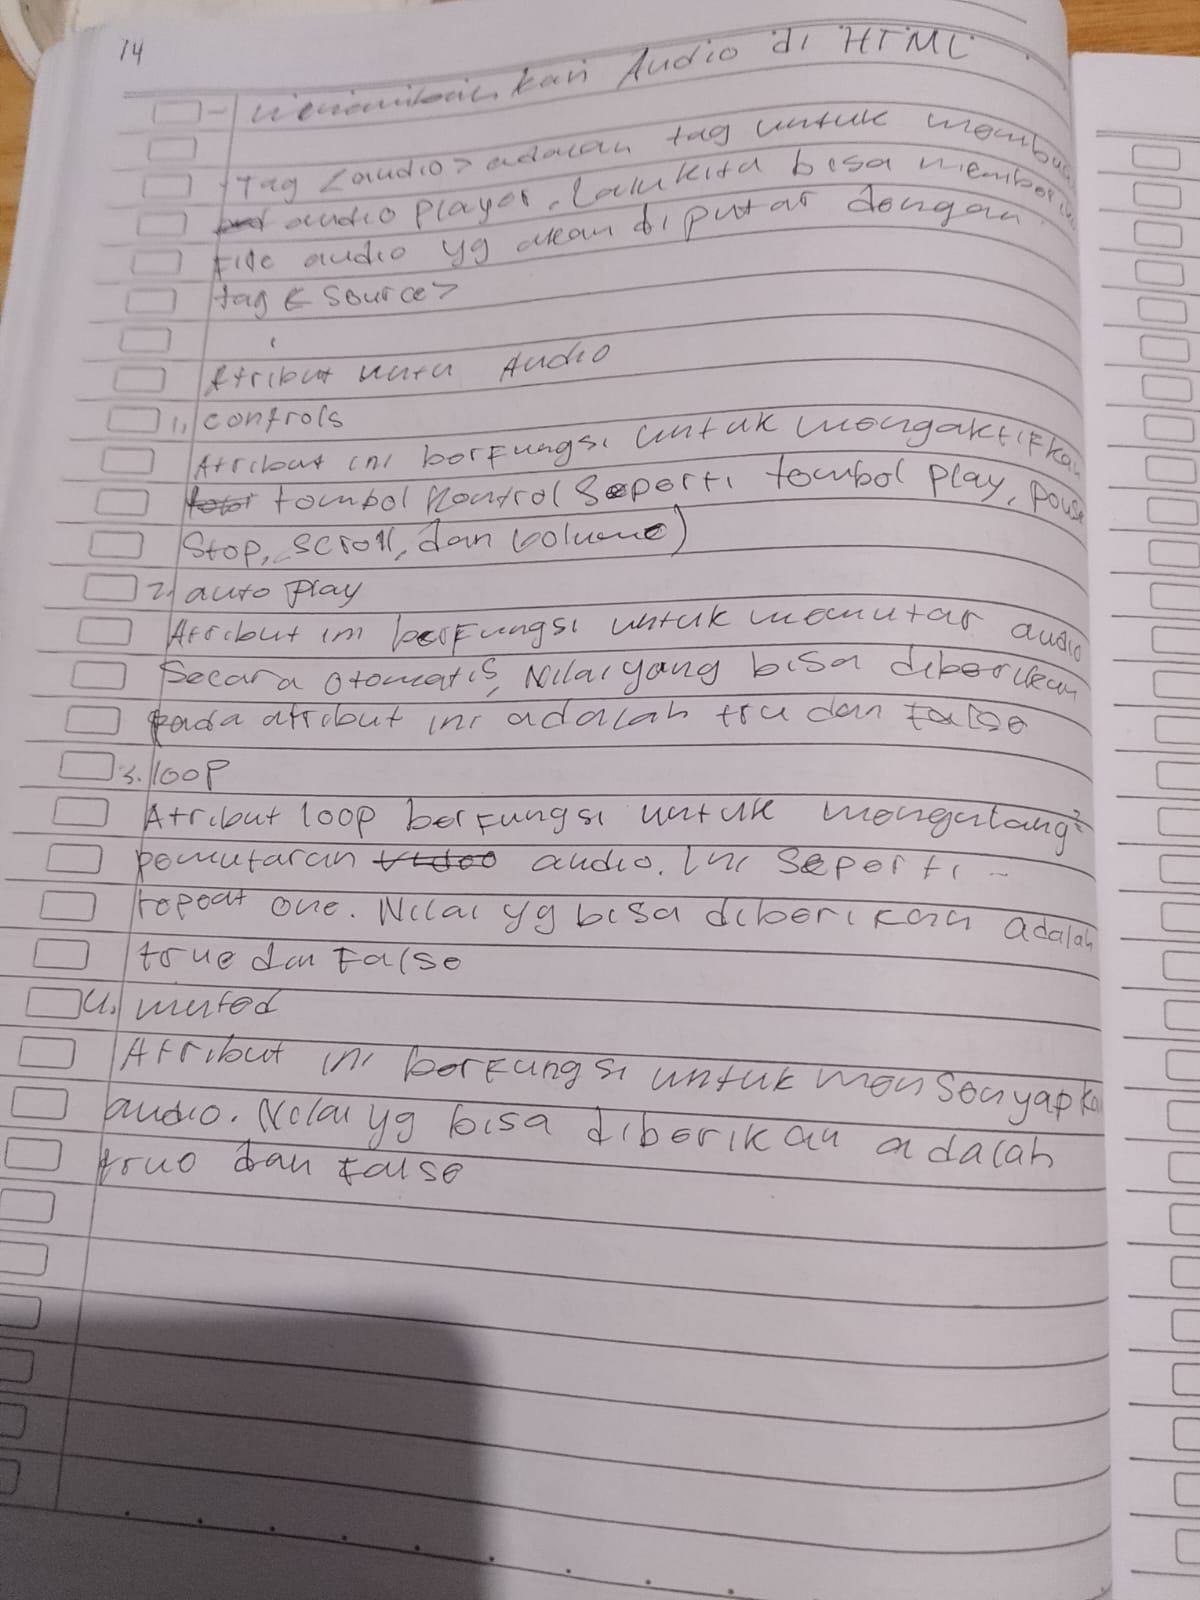 14
- Menambahkan Audio di HTML
Tag <audio> adalah tag untuk membuat
audio player. Lalu kita bisa memberikan
File audio yg akan diputar dengan
tag <source>
Atribut untu Audio
1. controls
Atribut ini berfungsi untuk mengaktifkan
tombol kontrol seperti tombol play, pouse
Stop, scroll, dan volume)
2. auto play
Atribut ini berfungsi untuk memutar audio
Secara otomatis, Nilai yang bisa diberikan
pada atribut ini adalah tru dan false
3. loop
Atribut loop berfungsi untuk mengulang²
pemutaran video audio. Ini seperti -
repeat one. Nilai yg bisa diberikan adalah
true dan False
4. muted
Atribut ini berfungsi untuk mensenyapkan
audio. Nilai yg bisa diberikan adalah
true dan false